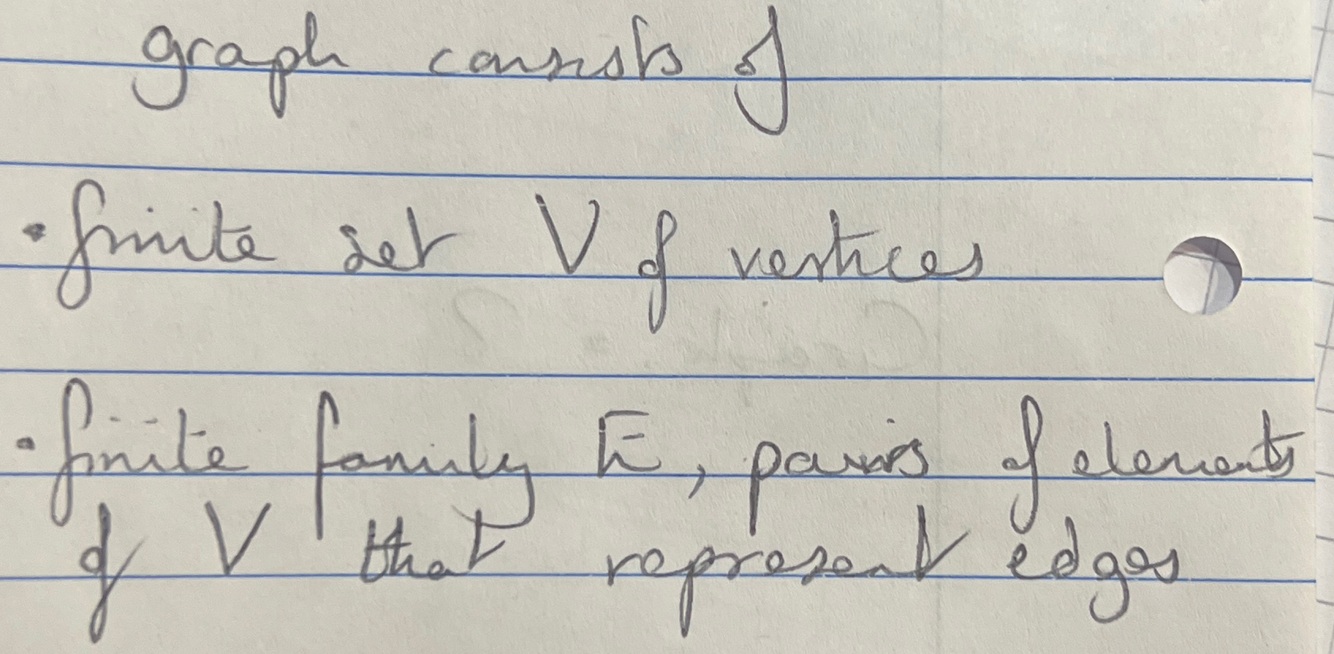 graph consists of
• finite set V of vertices
• finite family E, pairs of elements
of V that represent edges